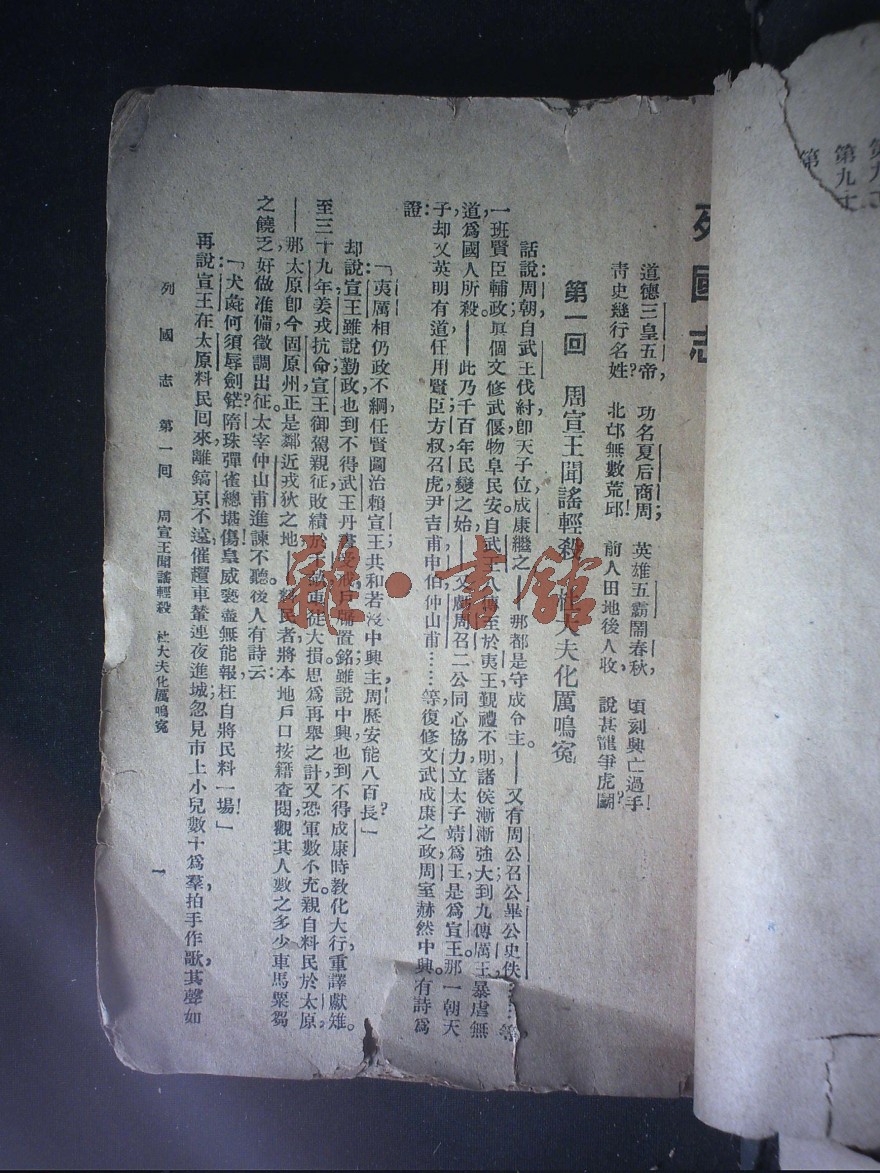 第九
第九
第
列國志
道德三皇五帝，　功名夏后商周；　英雄五霸鬧春秋，　頃刻興亡過手！
青史幾行名姓？　北邙無數荒邱；　前人田地後人收，　說甚龍爭虎鬭？
第一回　周宣王聞謠輕殺　杜大夫化厲鳴冤
話說：周朝，自武王伐紂，卽天子位，成康繼之——那都是守成令主。——又有周公召公畢公史佚……等
一班賢臣輔政；眞個文修武偃，物阜民安。自武王八傳至於夷王，覲禮不明，諸侯漸漸強大；到九傳厲王，暴虐無
道，爲國人所殺。——此乃千百年民變之始，——又虧周召二公同心協力，立太子靖爲王，是爲宣王。那一朝天
子，却又英明有道，任用賢臣方叔召虎尹吉甫申伯仲山甫……等，復修文武成康之政，周室赫然中興。有詩爲
證：
「夷厲相仍政不綱，任賢圖治賴宣王；共和若沒中興主，周歷安能八百長？」
却說：宣王雖說勤政，也到不得武王丹書受戒，戶牖置銘；雖說中興，也到不得成康時教化大行，重譯獻雉。
至三十九年，姜戎抗命，宣王御駕親征，敗績於千畝，車徒大損；思爲再舉之計，又恐軍數不充。親自料民於太原
——那太原卽今固原州，正是鄰近戎狄之地——料民者，將本地戶口，按籍查閱，觀其人數之多少，車馬粟芻
之饒乏，好做准備，徵調出征。太宰仲山甫進諫，不聽。後人有詩云：
「犬彘何須辱劍鋩？隋珠彈雀總堪傷！皇威褻盡無能報，枉自將民料一場！」
再說宣王在太原料民回來，離鎬京不遠，催趲車輦，連夜進城；忽見市上小兒數十爲羣，拍手作歌，其聲如
列國志　第一回　周宣王聞謠輕殺　杜大夫化厲鳴冤　一
雜·書館